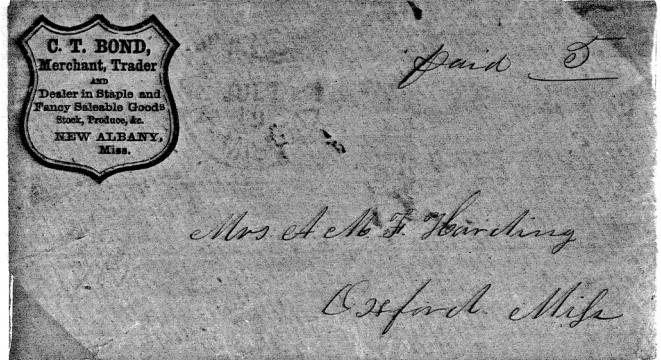 C. T. BOND,
Merchant, Trader
AND
Dealer in Staple and
Fancy Saleable Goods
Stock, Produce, &c.
NEW ALBANY,
Miss.
Paid 5
Mrs. A. M. F. Harding
Oxford. Miss